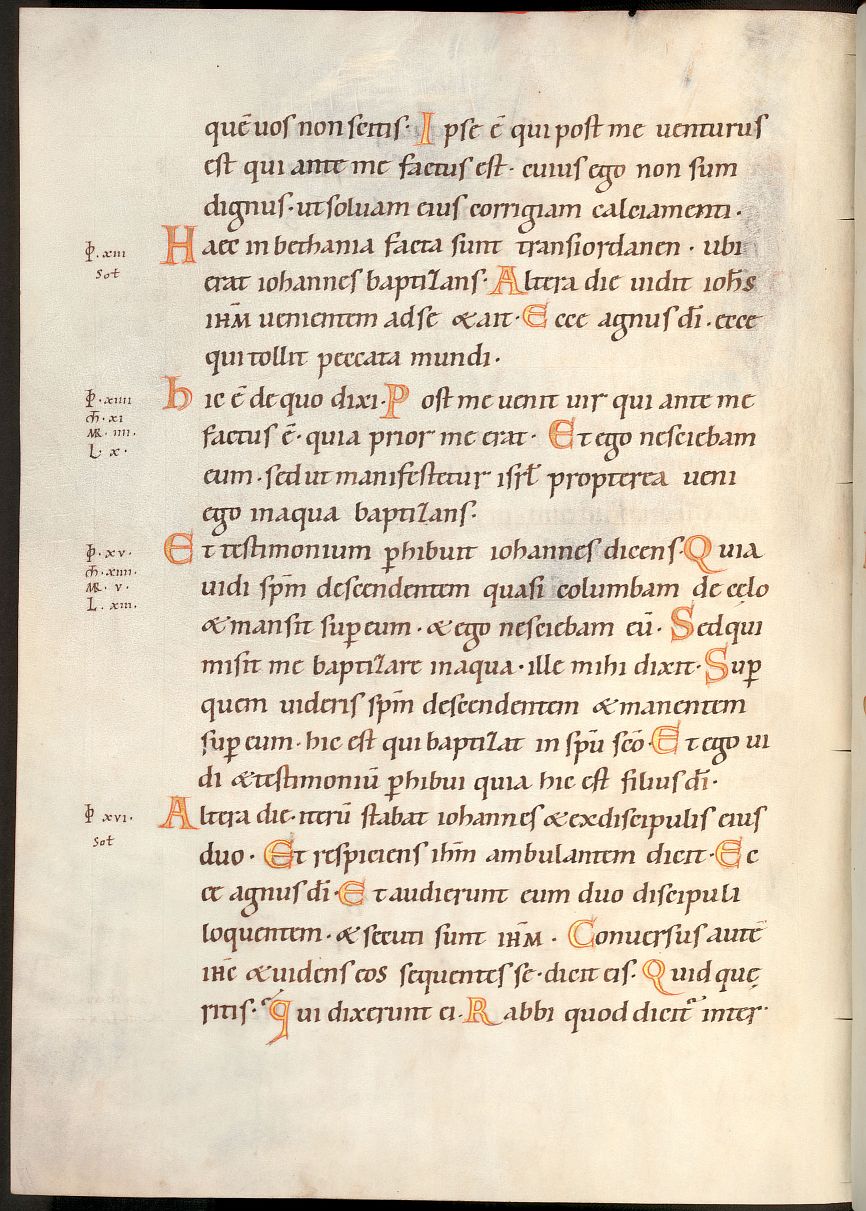 quē uos non scitis· Ipse ē qui post me uenturus
est qui ante me factus est· cuius ego non sum
dignus· ut soluam eius corrigiam calciamenti·
ꟼ. xiii
Haec in bethania facta sunt transiordanen· ubi
Sot̄
erat iohannes baptizans· Altera die uidit ioh̄s
ih̄m uenientem ad se & ait· Ecce agnus d̄i· ecce
qui tollit peccata mundi·
ꟼ. xiiii
hic ē de quo dixi· Post me uenit uir qui ante me
m̄. xi
MR. iiii.
factus ē· quia prior me erat· Et ego nesciebam
L. x.
eum· sed ut manifestetur isrł propterea ueni
ego in aqua baptizans·
ꟼ. xv.
Et testimonium ꝑhibuit iohannes dicens· Quia
m̄. xiiii.
MR. v.
uidi sp̄m descendentem quasi columbam de cęlo
L. xiii.
& mansit suꝑ eum· & ego nesciebam eū· Sed qui
misit me baptizare in aqua· ille mihi dixit· Suꝑ
quem uideris sp̄m descendentem & manentem
suꝑ eum· hic est qui baptizat in sp̄u sc̄o· Et ego ui
di & testimoniū ꝑhibui quia hic est filius d̄i·
ꟼ xvi.
Altera die· iterū stabat iohannes & ex discipulis eius
Sot̄
duo· Et respiciens ih̄m ambulantem dicit· Ec
ce agnus d̄i· Et audierunt eum duo discipuli
loquentem· & secuti sunt ih̄m· Conuersus autē
ih̄c & uidens eos sequentes se· dicit eis· Quid quę
ritis· Qui dixerunt ei· Rabbi quod dicit᷑ inter